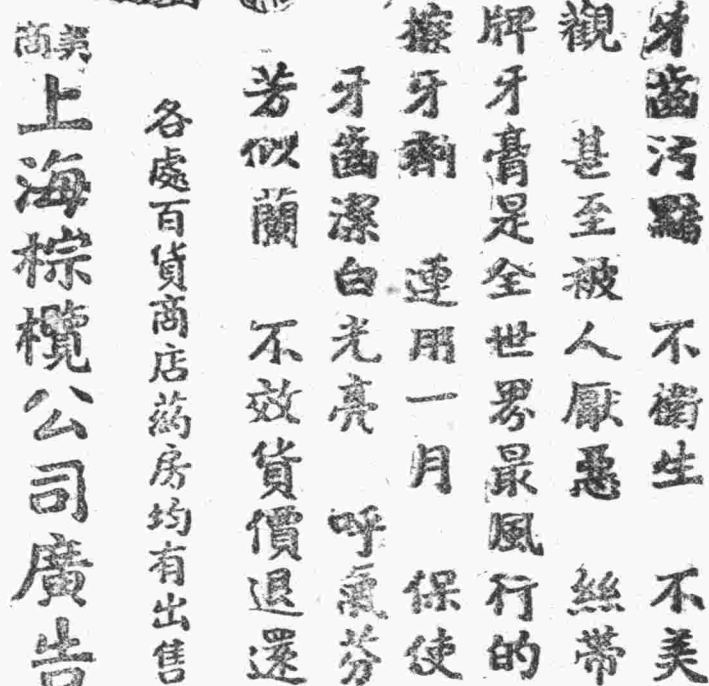 牙齒污黯 不衞生 不美
觀 甚至被人厭惡 絲帶
牌牙膏是全世界最風行的
擦牙劑 連用一月 保使
牙齒潔白光亮 呼氣芬
芳似蘭 不效貨價退還
各處百貨商店葯房均有出售
美商
上海棕欖公司廣告